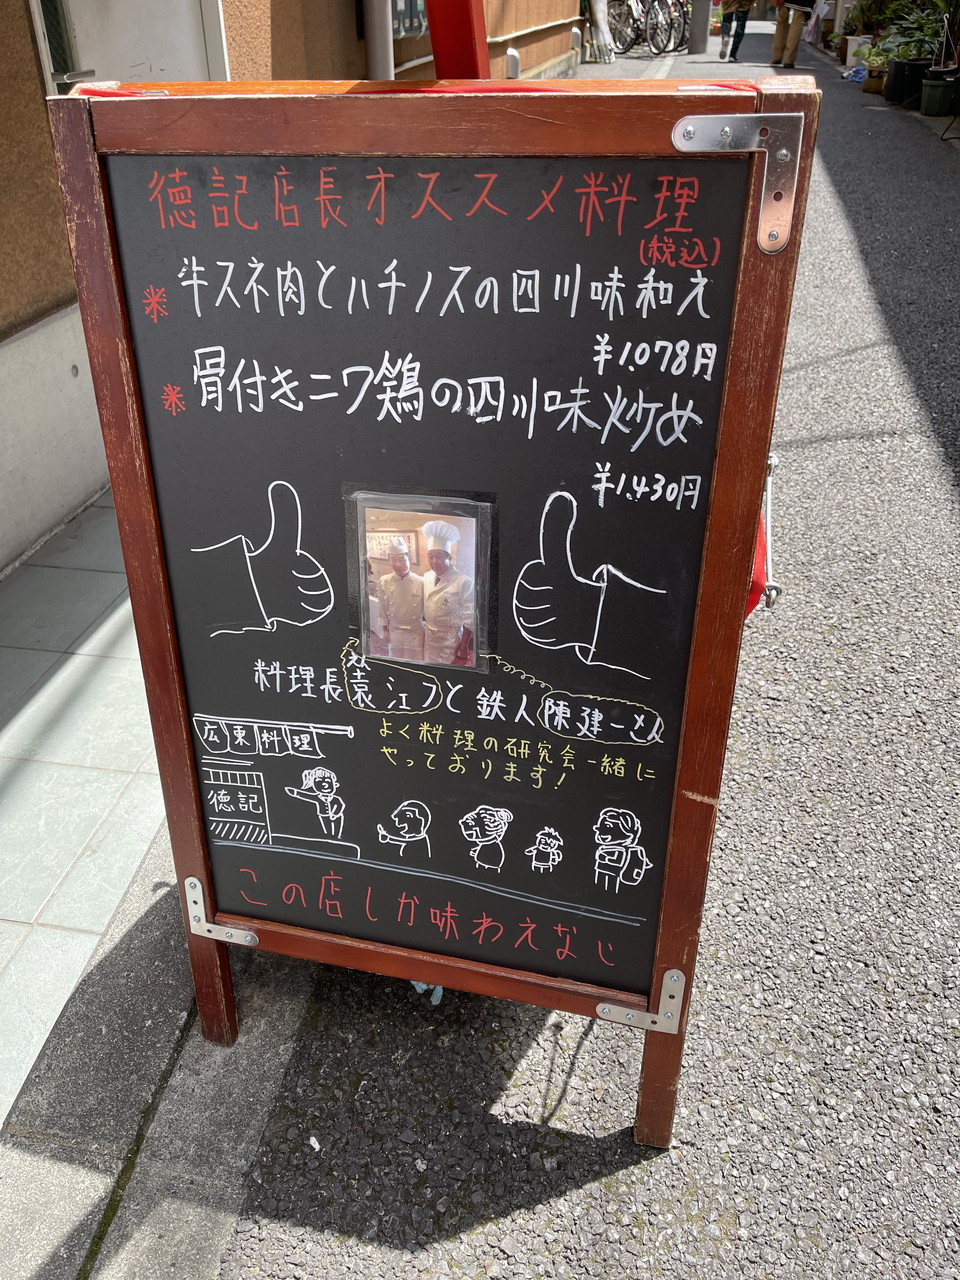 徳記店長オススメ料理
(税込)
* 牛スネ肉とハチノスの四川味和え
¥1.078円
* 骨付きニワ鶏の四川味炒め
¥1.430円
料理長袁江フと鉄人陳建一さん
よく料理の研究会一緒に
やっております!
広東料理
徳記
この店しか味わえなし